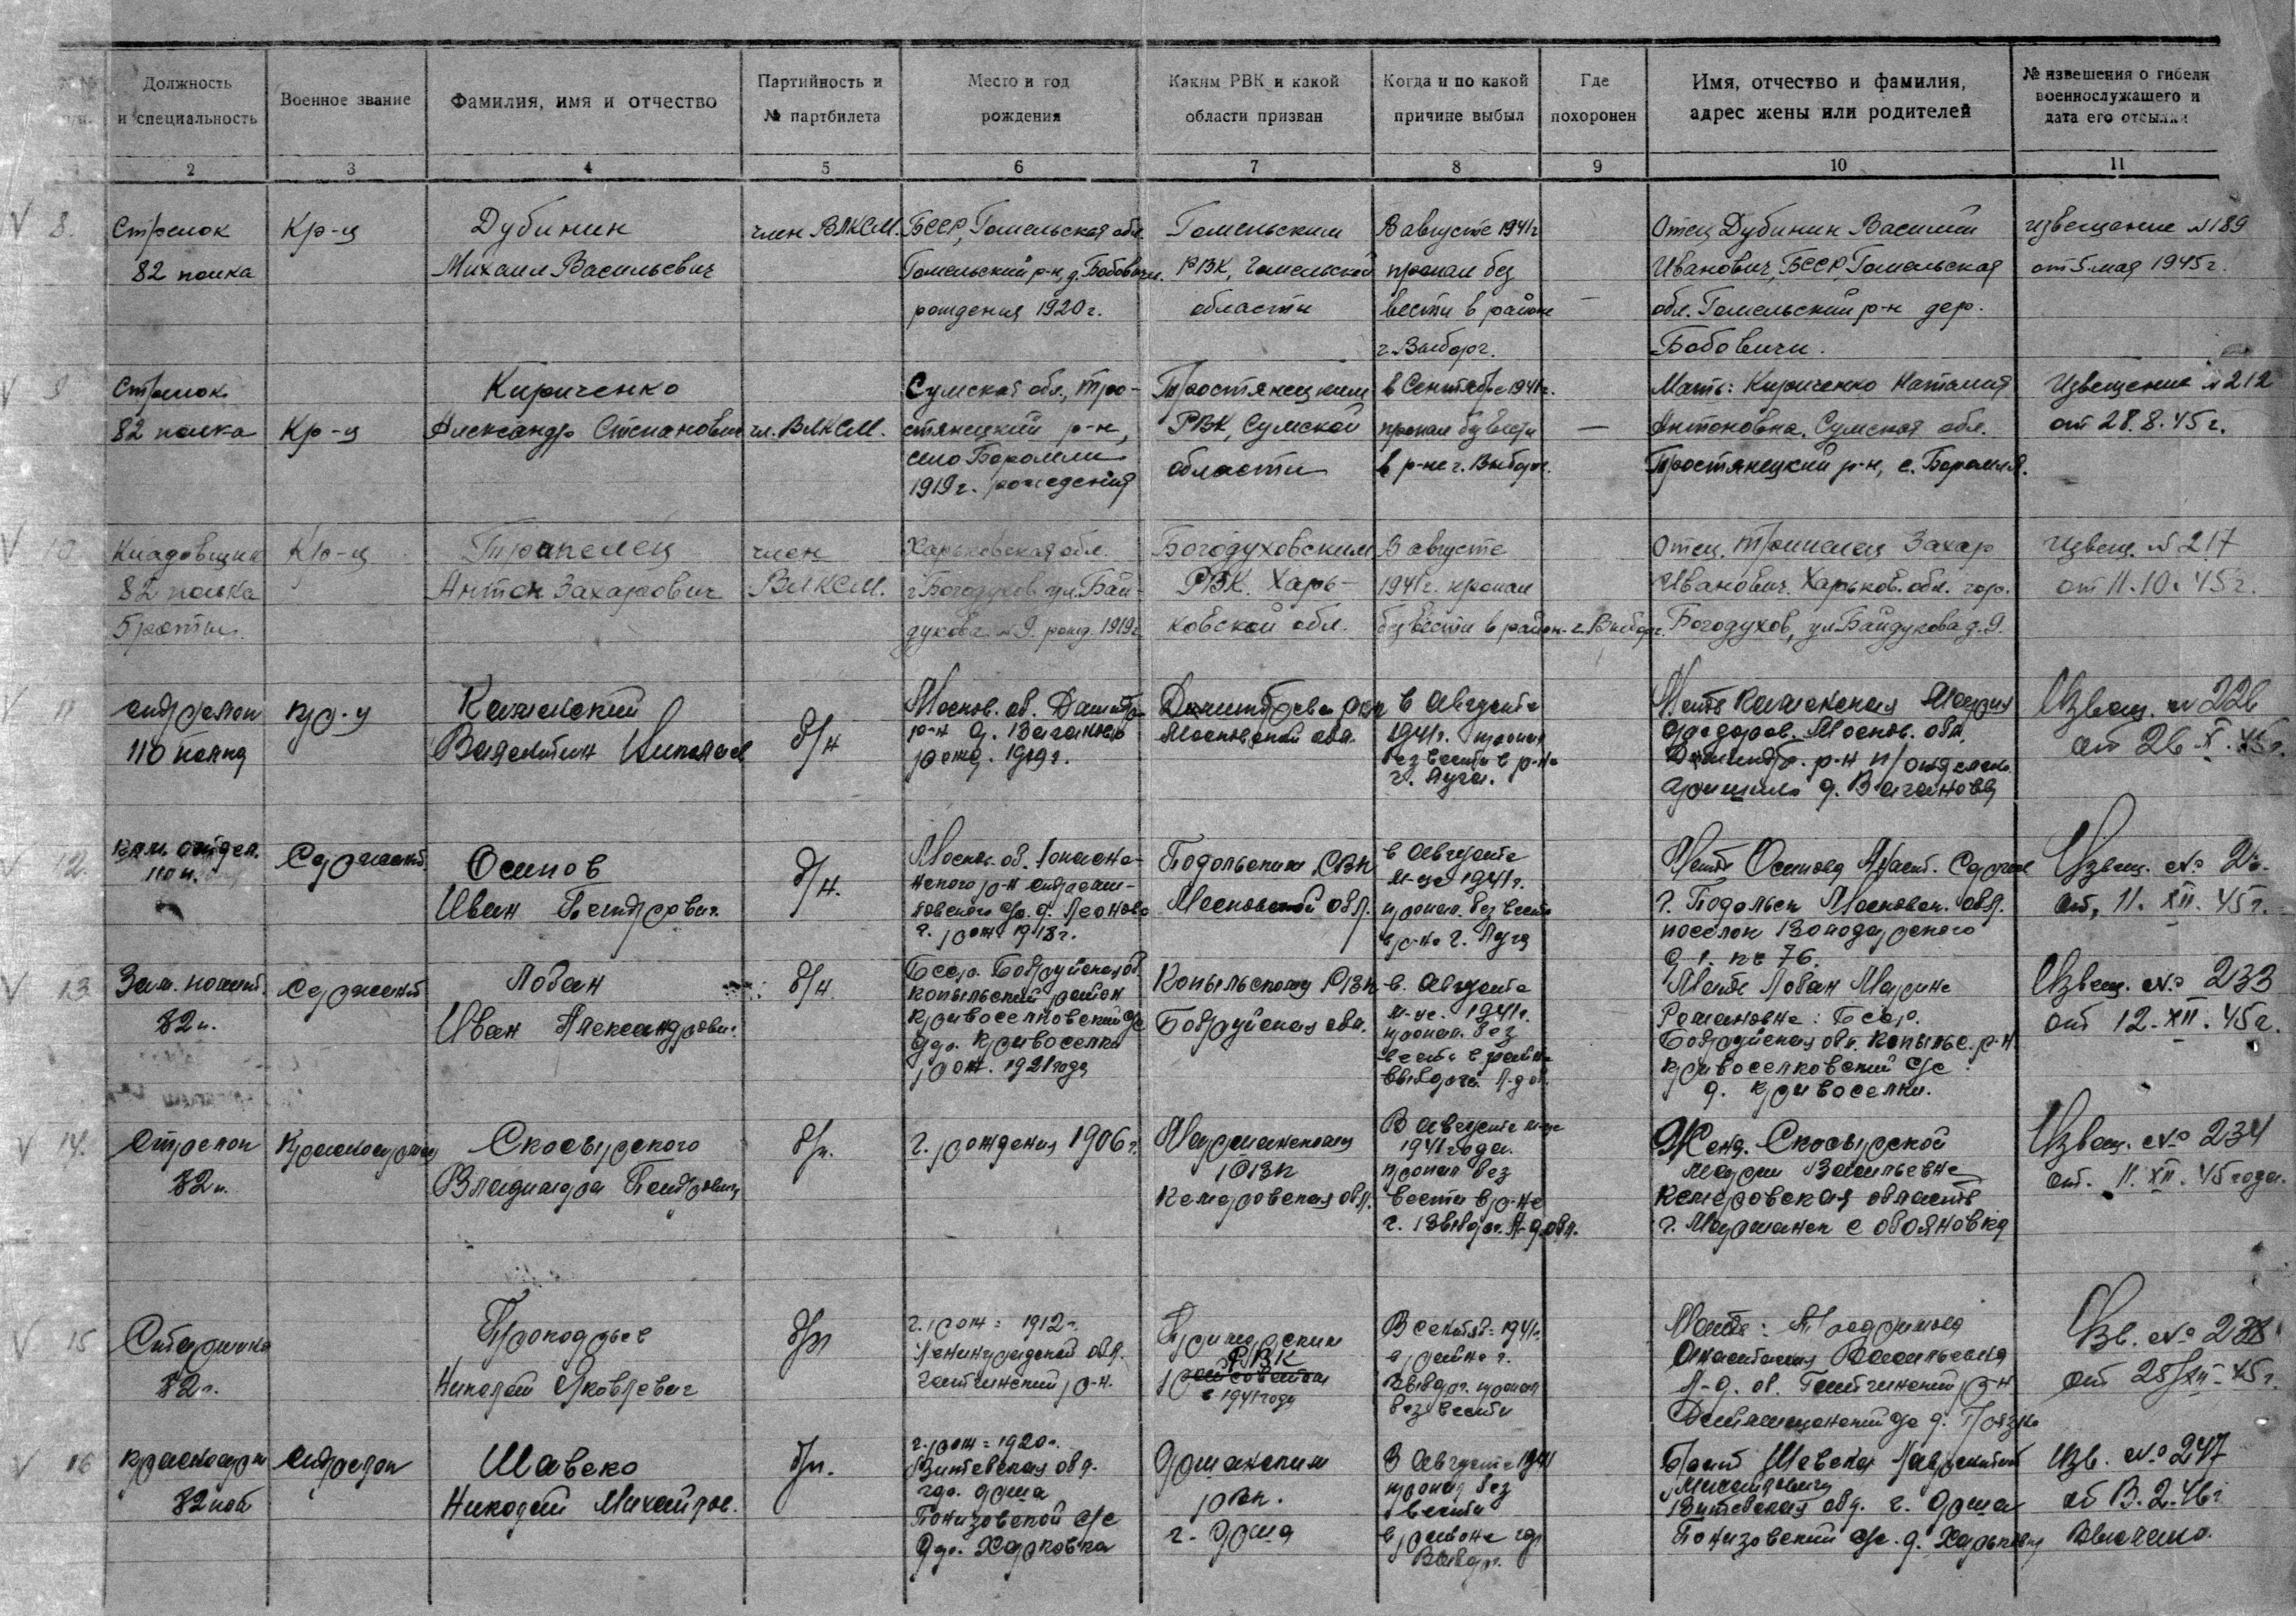 Должность и специальность
Военное звание
Фамилия, имя и отчество
Партийность и № партбилета
Место и год рождения
Каким РВК и какой области призван
Когда и по какой причине выбыл
Где похоронен
Имя, отчество и фамилия, адрес жены или родителей
№ извещения о гибели военнослужащего и дата его отсылки
2 3 4 5 6 7 8 9 10 11
8.
Стрелок
82 полка
Кр-ц
Дубинин
Михаил Васильевич
член ВЛКСМ.
БССР, Гомельская обл.
Гомельский р-н, д. Бобовичи.
рождения 1920 г.
Гомельским
РВК, Гомельской
области
В августе 1941 г
пропал без
вести в районе
г. Выборг.
—
Отец Дубинин Василий
Иванович, БССР, Гомельская
обл. Гомельский р-н дер.
Бобовичи.
Извещение №189
от 5 мая 1945 г.
9
Стрелок
82 полка
Кр-ц
Кириченко
Александр Степанович
чл. ВЛКСМ.
Сумская обл., Тро-
стянецкий р-н,
село Боромли
1919 г. рождения
Тростянецким
РВК, Сумской
области
в Сентябре 1941 г.
пропал без вести
в р-не г. Выборг.
—
Мать: Кириченко Наталия
Антоновна. Сумская обл.
Тростянецкий р-н, с. Боромля.
Извещение №212
от 28.8.45 г.
10
Кладовщик
82 полка
5 роты.
Кр-ц
Антон Захарович
член
ВЛКСМ.
Харьковская обл.
г. Богодухов ул. Бай-
дукова №9. рожд. 1919 г
Богодуховским
РВК. Харь-
ковской обл.
В августе
1941 г. пропал
без вести в район. г. Выборг.
Отец Захар
Иванович. Харьков. обл. гор.
Богодухов, ул. Байдукова д. 9.
Извещ. №217
от 11.10.45 г.
11
стрелок
110 полка
кр-ц
Каменский
Валентин
б/н
Москов. об.
р-н д. Ваганово
рожд. 1919 г.
Московской обл.
в Августе
1941 г. пропал
без вести в р-не
г. Луга.
Мать Каменская Мария
Федоров. Москов. обл.
р-н п/отделен.
д. Ваганова
Извещ. № 226
от 26.X.45 г.
12.
Ком. отдел.
110 п.
Сержант.
Осипов
Иван Петрович
б/н.
Москов. об.
р-н
с/с. д. Леоново
г. рож. 1918 г.
Подольским РВК
Московской обл.
в Августе
м-це 1941 г.
пропал. без вести
в р-не г. Луга
Мать Осипова Анаст. Серге
г. Подольск Московск. обл.
поселок Володарского
д 1. кв 76.
Извещ. №
от, 11. XII. 45 г.
13
82 п.
Сержант
Лобан
Иван Александрович.
б/н.
Бсср. Бобруйская об
Копыльский район
Кривоселковский с/с
дер. Кривоселки
рож. 1921 года
Копыльскому РВК
Бобруйская обл.
в. Августе
м-це. 1941 г.
пропал. без
вести в районе
Выборга Л-д об.
Мать Лобан Марине
Романовне: Бсср.
Бобруйская обл. Копыльс. р-н
Кривоселковский с/с
д. Кривоселки.
Извещ. № 233
от 12. XII. 45 г.
14.
Стрелок
82 п.
Красноармеец
Скосырского
Владимира Петрович
б/п.
г. рождения 1906 г.
РВК
Кемеровская обл.
В августе м-це
1941 года.
пропал без
вести в р-не
г. Выборг. Л-д. обл.
Жена. Скосырской
Марии Васильевне
Кемеровская область
Извещ. № 234
от. 11. XII. 45 года.
15
Старшина
82 п.
Николай Яковлевич
б/п
г. рож = 1912 г.
Ленинградской обл.
Гатчинский р-н.
РВК
в 1941 году
В сентяб = 1941 г.
в районе г.
Выборг. пропал
без вести
Мать:
Анастасия Васильевна
Л-д. об. Гатчинский р-н
Изв. №
от 28/XII-45 г.
16
Красноарм
82 поб
Стрелок
Шавеко
Николай Михайлов.
б/п.
г. рож = 1920 г.
Витебская обл.
гор. Орша
Понизовской с/с
Дер. Харковка
Оршанским
РВК.
г. Орша
В Августе 1941
пропал без
вести
в районе гор
Выборг.
Брат
Михайлович
Витебская обл. г. Орша
Понизовский с/с. д.
Изв. № 247
от 8.2.46 г